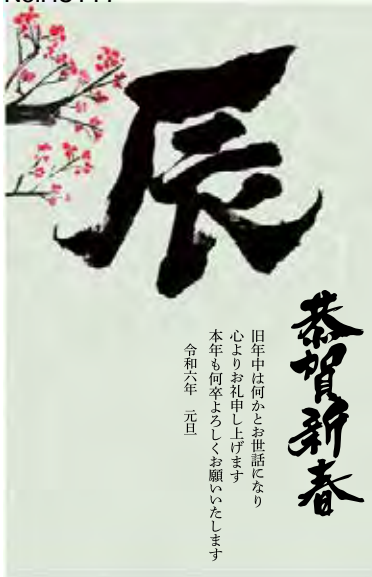 辰
恭賀新春
旧年中は何かとお世話になり
心よりお礼申し上げます
本年も何卒よろしくお願いいたします
令和六年 元旦